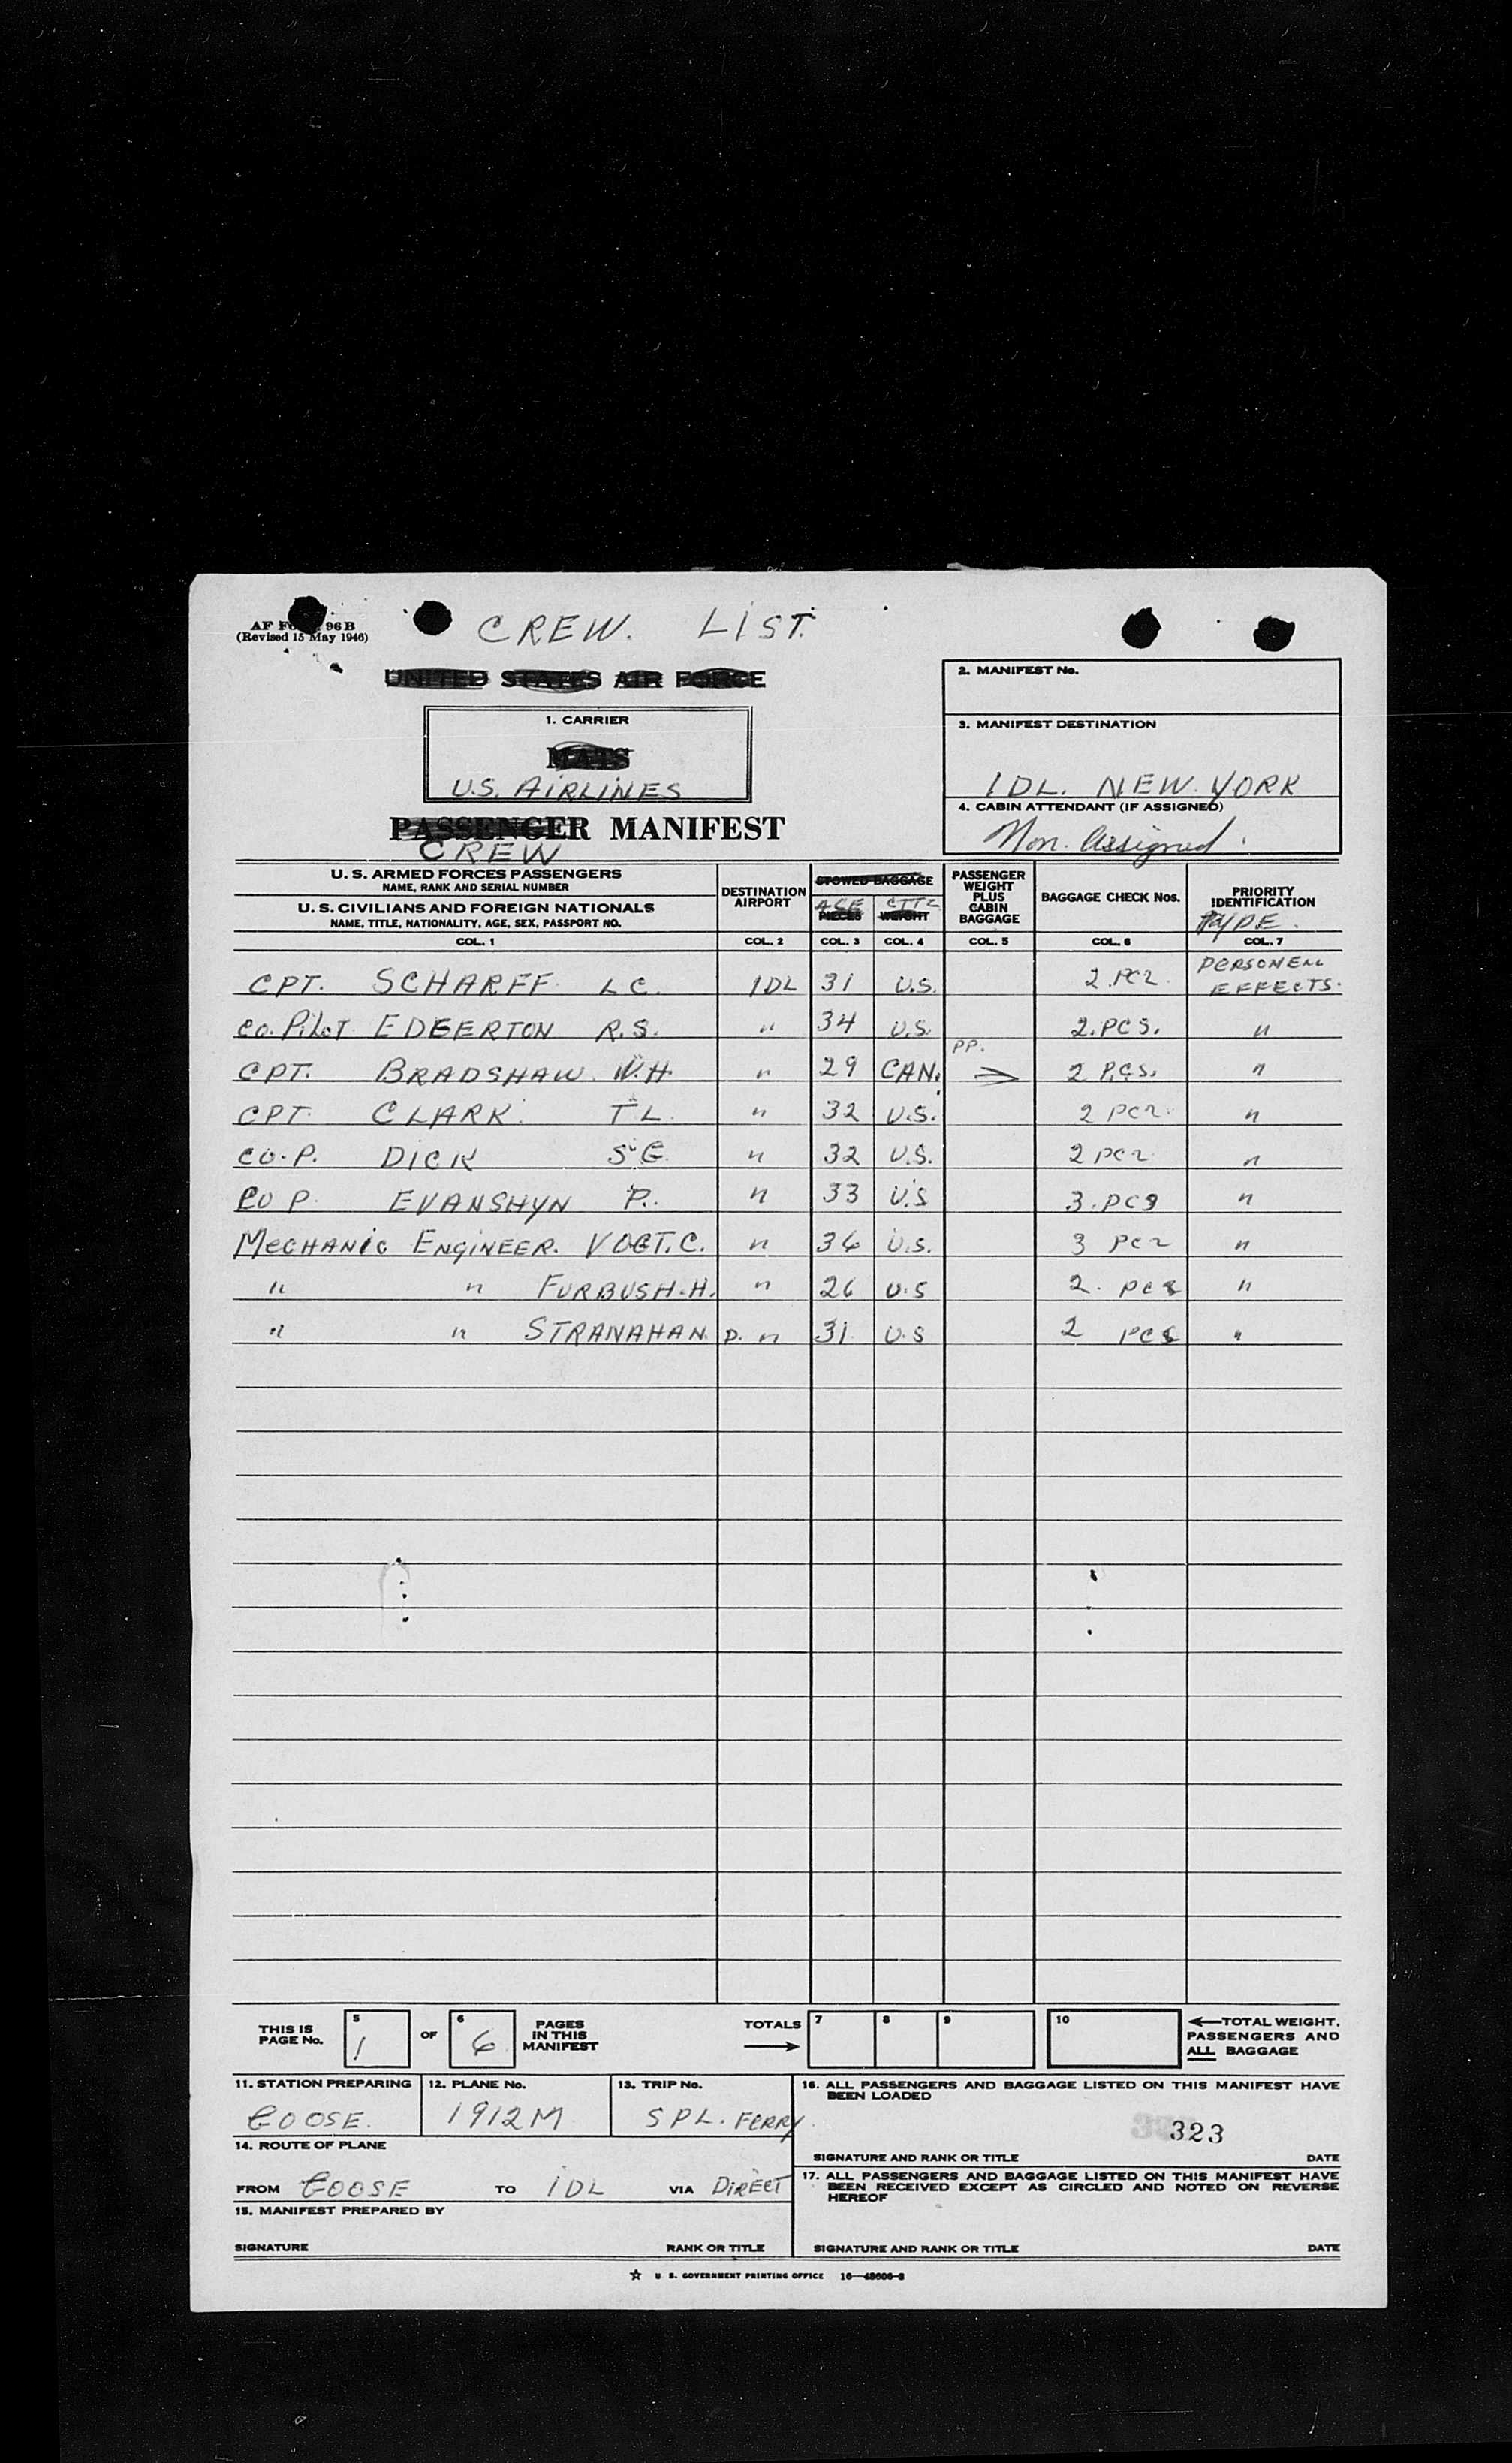 CREW. LIST.
AF FO 96 B
(Revised 15 May 1946)
UNITED STATES AIR FORCE
1. CARRIER
MATS
U.S. AIRLINES
PASSENGER MANIFEST
CREW
2. MANIFEST No.
3. MANIFEST DESTINATION
IDL. NEW YORK
4. CABIN ATTENDANT (IF ASSIGNED)
Non. Assigned.
U. S. ARMED FORCES PASSENGERS
NAME, RANK AND SERIAL NUMBER
U. S. CIVILIANS AND FOREIGN NATIONALS
NAME, TITLE, NATIONALITY, AGE, SEX, PASSPORT NO.
DESTINATION
AIRPORT
STOWED BAGGAGE
AGE CTTZ
PIECES WEIGHT
PASSENGER
WEIGHT
PLUS
CABIN
BAGGAGE
BAGGAGE CHECK Nos.
PRIORITY
IDENTIFICATION
TYPE.
COL. 1 COL. 2 COL. 3 COL. 4 COL. 5 COL. 6 COL. 7
CPT. SCHARFF L C. IDL 31 U.S. 2. PCS. PERSONELL EFFECTS.
CO. PiLoT EDGERTON R.S. " 34 U.S. 2. PCS. "
CPT. BRADSHAW W.H. " 29 CAN. PP. → 2 PCS. "
CPT. CLARK. T L. " 32 U.S. 2 PCS. "
CO. P. DICK S G. " 32 U.S. 2 PCS "
CO P. EVANSHYN P. " 33 U.S 3. PCS "
MECHANIC ENGINEER. VOGT. C. " 36 U.S. 3 PCS "
" " FURBUSH. H. " 26 U.S 2. PCS "
" " STRANAHAN. D. " 31 U.S 2 PCS "
THIS IS
PAGE No.
5
1
OF
6
6
PAGES
IN THIS
MANIFEST
TOTALS
→
7 8 9 10
←TOTAL WEIGHT,
PASSENGERS AND
ALL BAGGAGE
11. STATION PREPARING
GOOSE.
12. PLANE No.
1912M
13. TRIP No.
SPL. FERRY
14. ROUTE OF PLANE
FROM GOOSE TO IDL VIA DIRECT
15. MANIFEST PREPARED BY
SIGNATURE RANK OR TITLE
16. ALL PASSENGERS AND BAGGAGE LISTED ON THIS MANIFEST HAVE
BEEN LOADED
323
SIGNATURE AND RANK OR TITLE DATE
17. ALL PASSENGERS AND BAGGAGE LISTED ON THIS MANIFEST HAVE
BEEN RECEIVED EXCEPT AS CIRCLED AND NOTED ON REVERSE
HEREOF
SIGNATURE AND RANK OR TITLE DATE
☆ U. S. GOVERNMENT PRINTING OFFICE